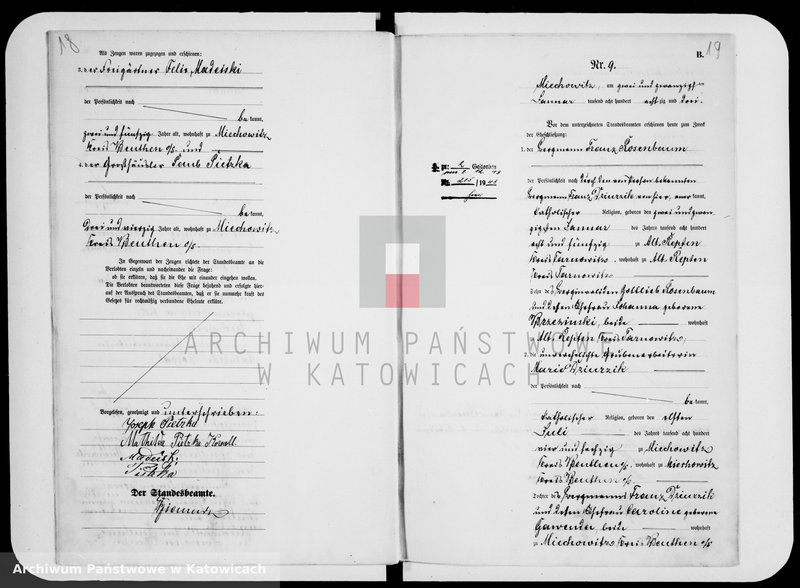 18
Als Zeugen waren zugezogen und erschienen:
3. der Freigärtner Felix Madetski
der Persönlichkeit nach
be kannt,
zwei und fünfzig Jahre alt, wohnhaft zu Miechowitz
Kreis Beuthen o/s. und
4. der Großhäusler Jacob Pietzka
der Persönlichkeit nach
be kannt,
Drei und vierzig Jahre alt, wohnhaft zu Miechowitz
Kreis Beuthen o/s.
In Gegenwart der Zeugen richtete der Standesbeamte an die
Verlobten einzeln und nacheinander die Frage:
ob sie erklären, daß sie die Ehe mit einander eingehen wollen.
Die Verlobten beantworteten diese Frage bejahend und erfolgte hier-
auf der Ausspruch des Standesbeamten, daß er sie nunmehr kraft des
Gesetzes für rechtmäßig verbundene Eheleute erkläre.
Vorgelesen, genehmigt und unterschrieben:
Joseph Pietzka
Mathilda Pietzka
Der Standesbeamte.
19
B.
Nr. 9.
Miechowitz, am zwei und zwanzigsten
Januar tausend acht hundert acht zig und drei.
Vor dem unterzeichneten Standesbeamten erschienen heute zum Zweck
der Eheschließung:
1. der Bergmann Franz Rosenbaum
der Persönlichkeit nach durch den von Person bekannten
Bergmann Franz Dziurzik von hier, aner kannt,
katholischer Religion, geboren den zwei und zwan-
zigsten Januar des Jahres tausend acht hundert
acht und fünfzig zu Alt. Repten
Kreis Tarnowitz, wohnhaft zu Alt. Repten
Kreis Tarnowitz
Sohn des Berginvaliden Gottlieb Rosenbaum
und dessen Ehefrau Johanna geborene
Brzezinski, beide wohnhaft
Alt. Repten Kreis Tarnowitz;
2. die unverehelichte Grubenarbeiterin
Marie Dziurzik
der Persönlichkeit nach
be kannt,
katholischer Religion, geboren den elften
Juli des Jahres tausend acht hundert
vier und sechzig zu Miechowitz
Kreis Beuthen o/s., wohnhaft zu Miechowitz
Kreis Beuthen o/s.
Tochter des Bergmanns Franz Dziurzik
und dessen Ehefrau Caroline geborene
Gawenda, beide wohnhaft
zu Miechowitz Kreis Beuthen o/s
ARCHIWUM PAŃSTWOWE
W KATOWICACH
Archiwum Państwowe w Katowicach